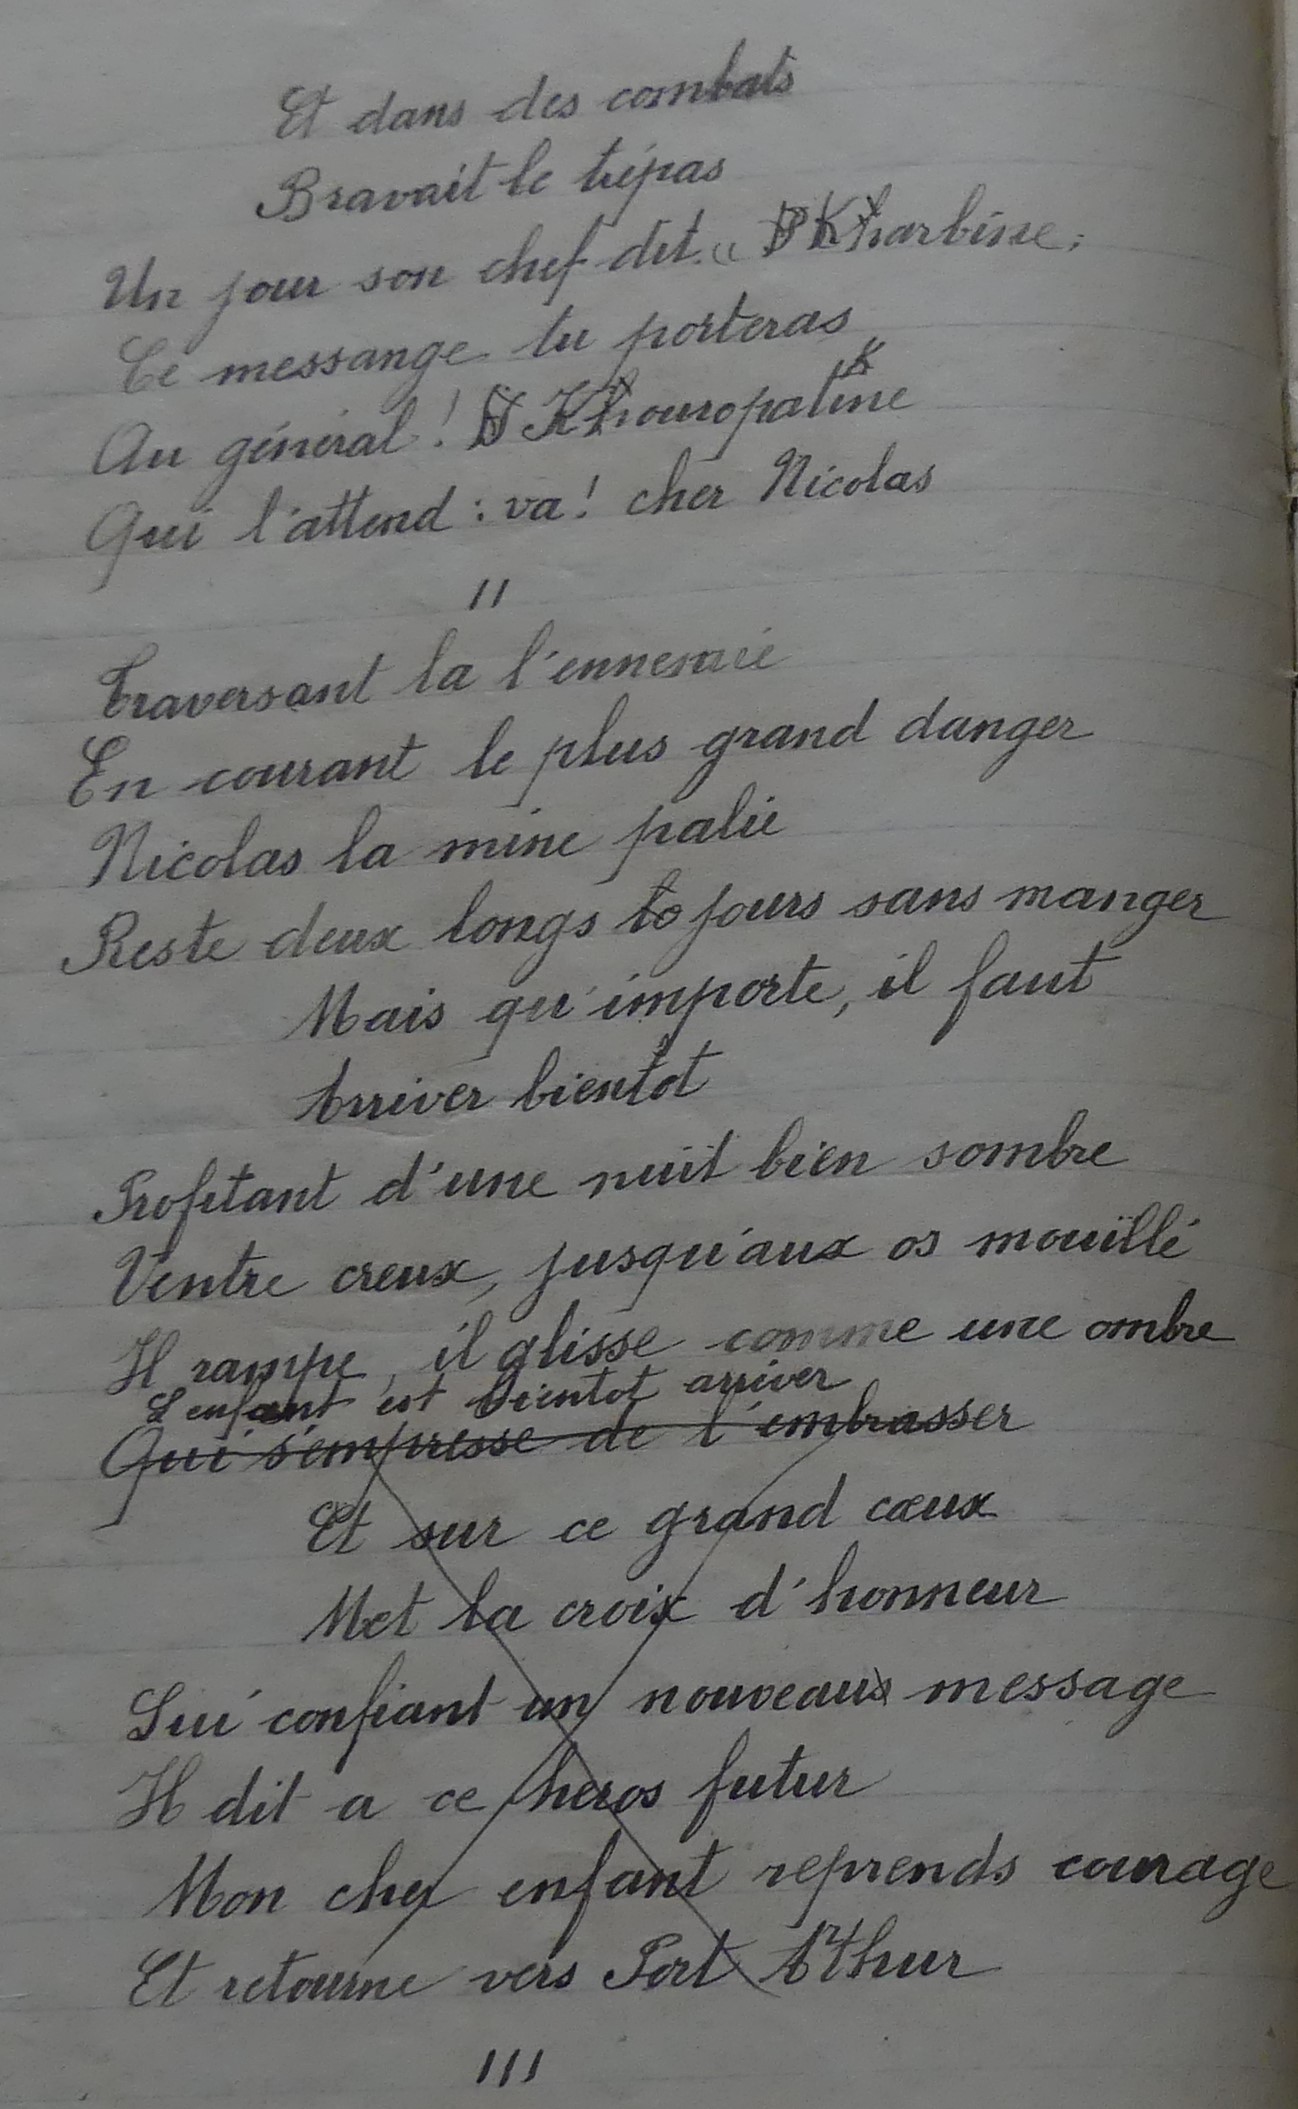 Et dans des combats
Bravait le trépas
Un jour son chef dit. " Kharbine;
Ce messange tu porteras
Au général! Khouropatkine
Qui l'attend : va! cher Nicolas
II
Traversant la l'ennemie
En courant le plus grand danger
Nicolas la mine palie
Reste deux longs to jours sans manger
Mais qu'importe, il faut
Arriver bientot
Profitant d'une nuit bien sombre
Ventre creux, jusqu'aux os mouillé
Il rampe, il glisse comme une ombre
L'enfant est bientot arriver
Qui s'empresse de l'embrasser
Et sur ce grand cœux
Met la croix d'honneur
Lui confiant un nouveaux message
Il dit a ce heros futur
Mon cher enfant reprends courage
Et retourne vers Port Arthur
III